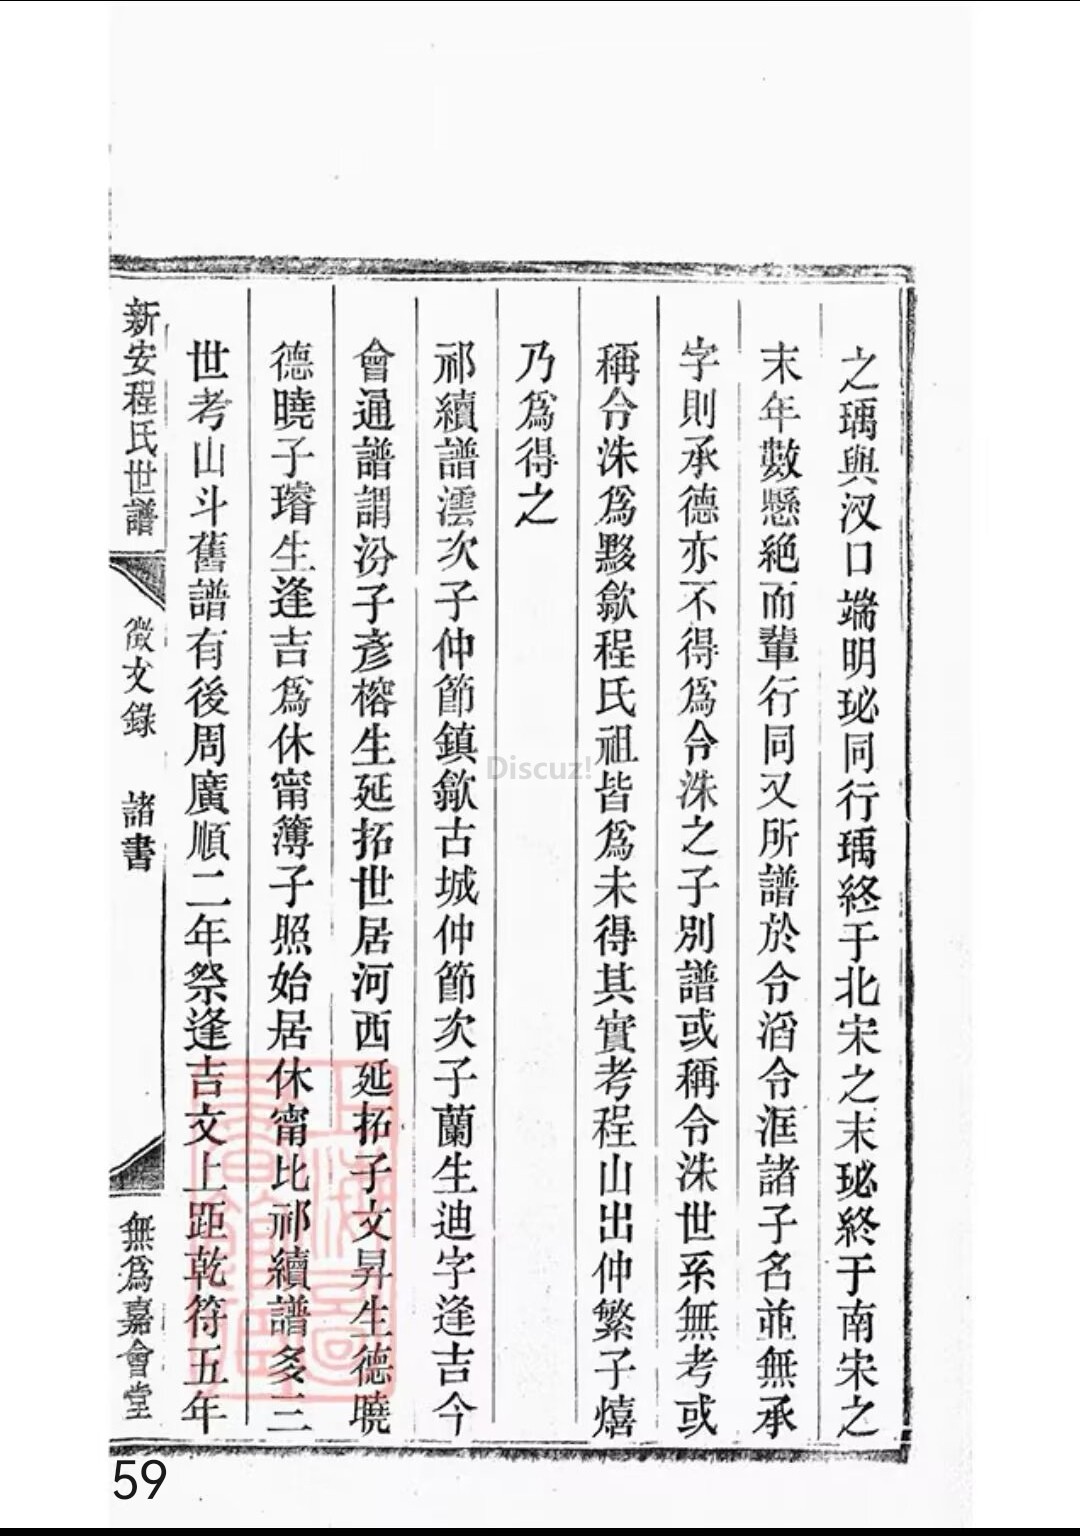 之瑀與汊口端明珌同行瑀終于北宋之末珌終于南宋之
末年數懸絶而輩行同又所譜於令滔令洭諸子名並無承
字則承德亦不得爲令洙之子別譜或稱令洙世系無考或
稱令洙爲黟歙程氏祖皆爲未得其實考程山出仲繁子熺
乃爲得之
祁續譜澐次子仲節鎮歙古城仲節次子蘭生迪字逢吉今
會通譜謂汾子彥榕生延拓世居河西延拓子文昇生德曉
德曉子璿生逢吉爲休甯簿子照始居休甯比祁續譜多三
世考山斗舊譜有後周廣順二年祭逢吉文上距乾符五年
新安程氏世譜
徵文錄 諸書
無爲嘉會堂
上海圖書館藏
Discuz!
59